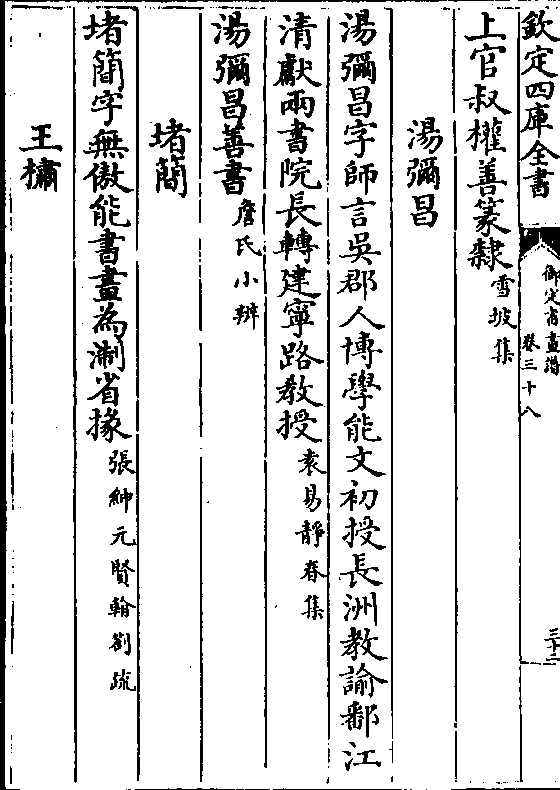 欽定四庫全書
御定書畫譜
卷三十八
三十二
上官叔權善篆隸雪坡集
湯彌昌
湯彌昌字師言吳郡人博學能文初授長洲教諭鄱江
清獻兩書院長轉建寧路教授袁易靜春集
湯彌昌善書詹氏小辨
堵簡
堵簡字無傲能書畫為淛省掾張紳元賢翰劄疏
王櫹